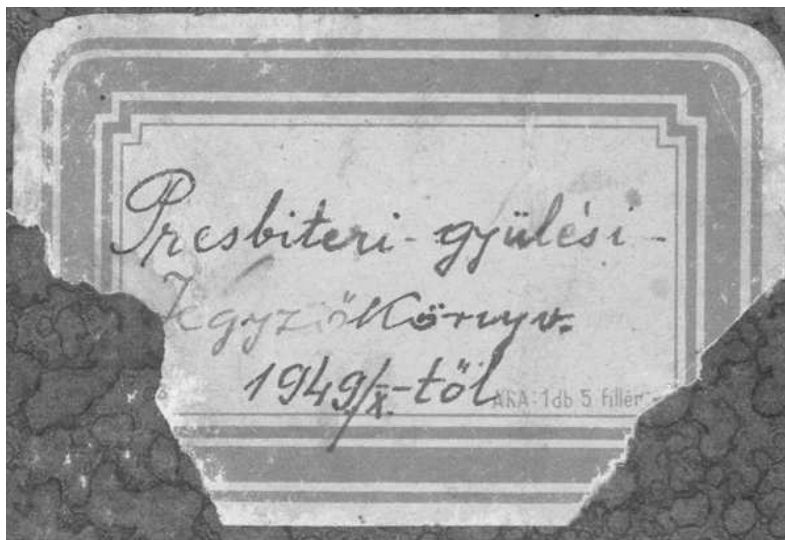 Presbiteri-gyülési-
Jegyzőkönyv.
1949/X.-től
ÁRA: 1db 5 fillér